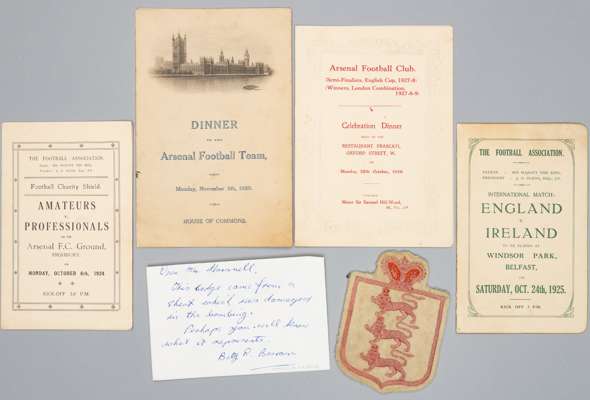 THE FOOTBALL ASSOCIATION.
Football Charity Shield.
AMATEURS
v.
PROFESSIONALS
ON THE
Arsenal F.C. Ground,
HIGHBURY,
ON
MONDAY, OCTOBER 6th, 1924
KICK-OFF P.M.
DINNER
TO THE
Arsenal Football Team,
Monday, November 5th,
HOUSE OF COMMONS.
Arsenal Football Club.
(Semi-Finalists, English Cup, 1927-8)
(Winners, London Combination,
1927-8-9)
Celebration Dinner
HELD AT THE
RESTAURANT FRASCATI,
OXFORD STREET, W.
ON
Monday, October,
Samuel Hill-Wood,
THE FOOTBALL ASSOCIATION.
INTERNATIONAL MATCH:
ENGLAND
v.
IRELAND
TO BE PLAYED AT
WINDSOR PARK,
BELFAST,
ON
SATURDAY, OCT. 24th, 1925.
KICK OFF P.M.
Dear Mr
This badge came from a
shirt which was damaged
in the bombing.
Perhaps you will know
what it represents.
R.